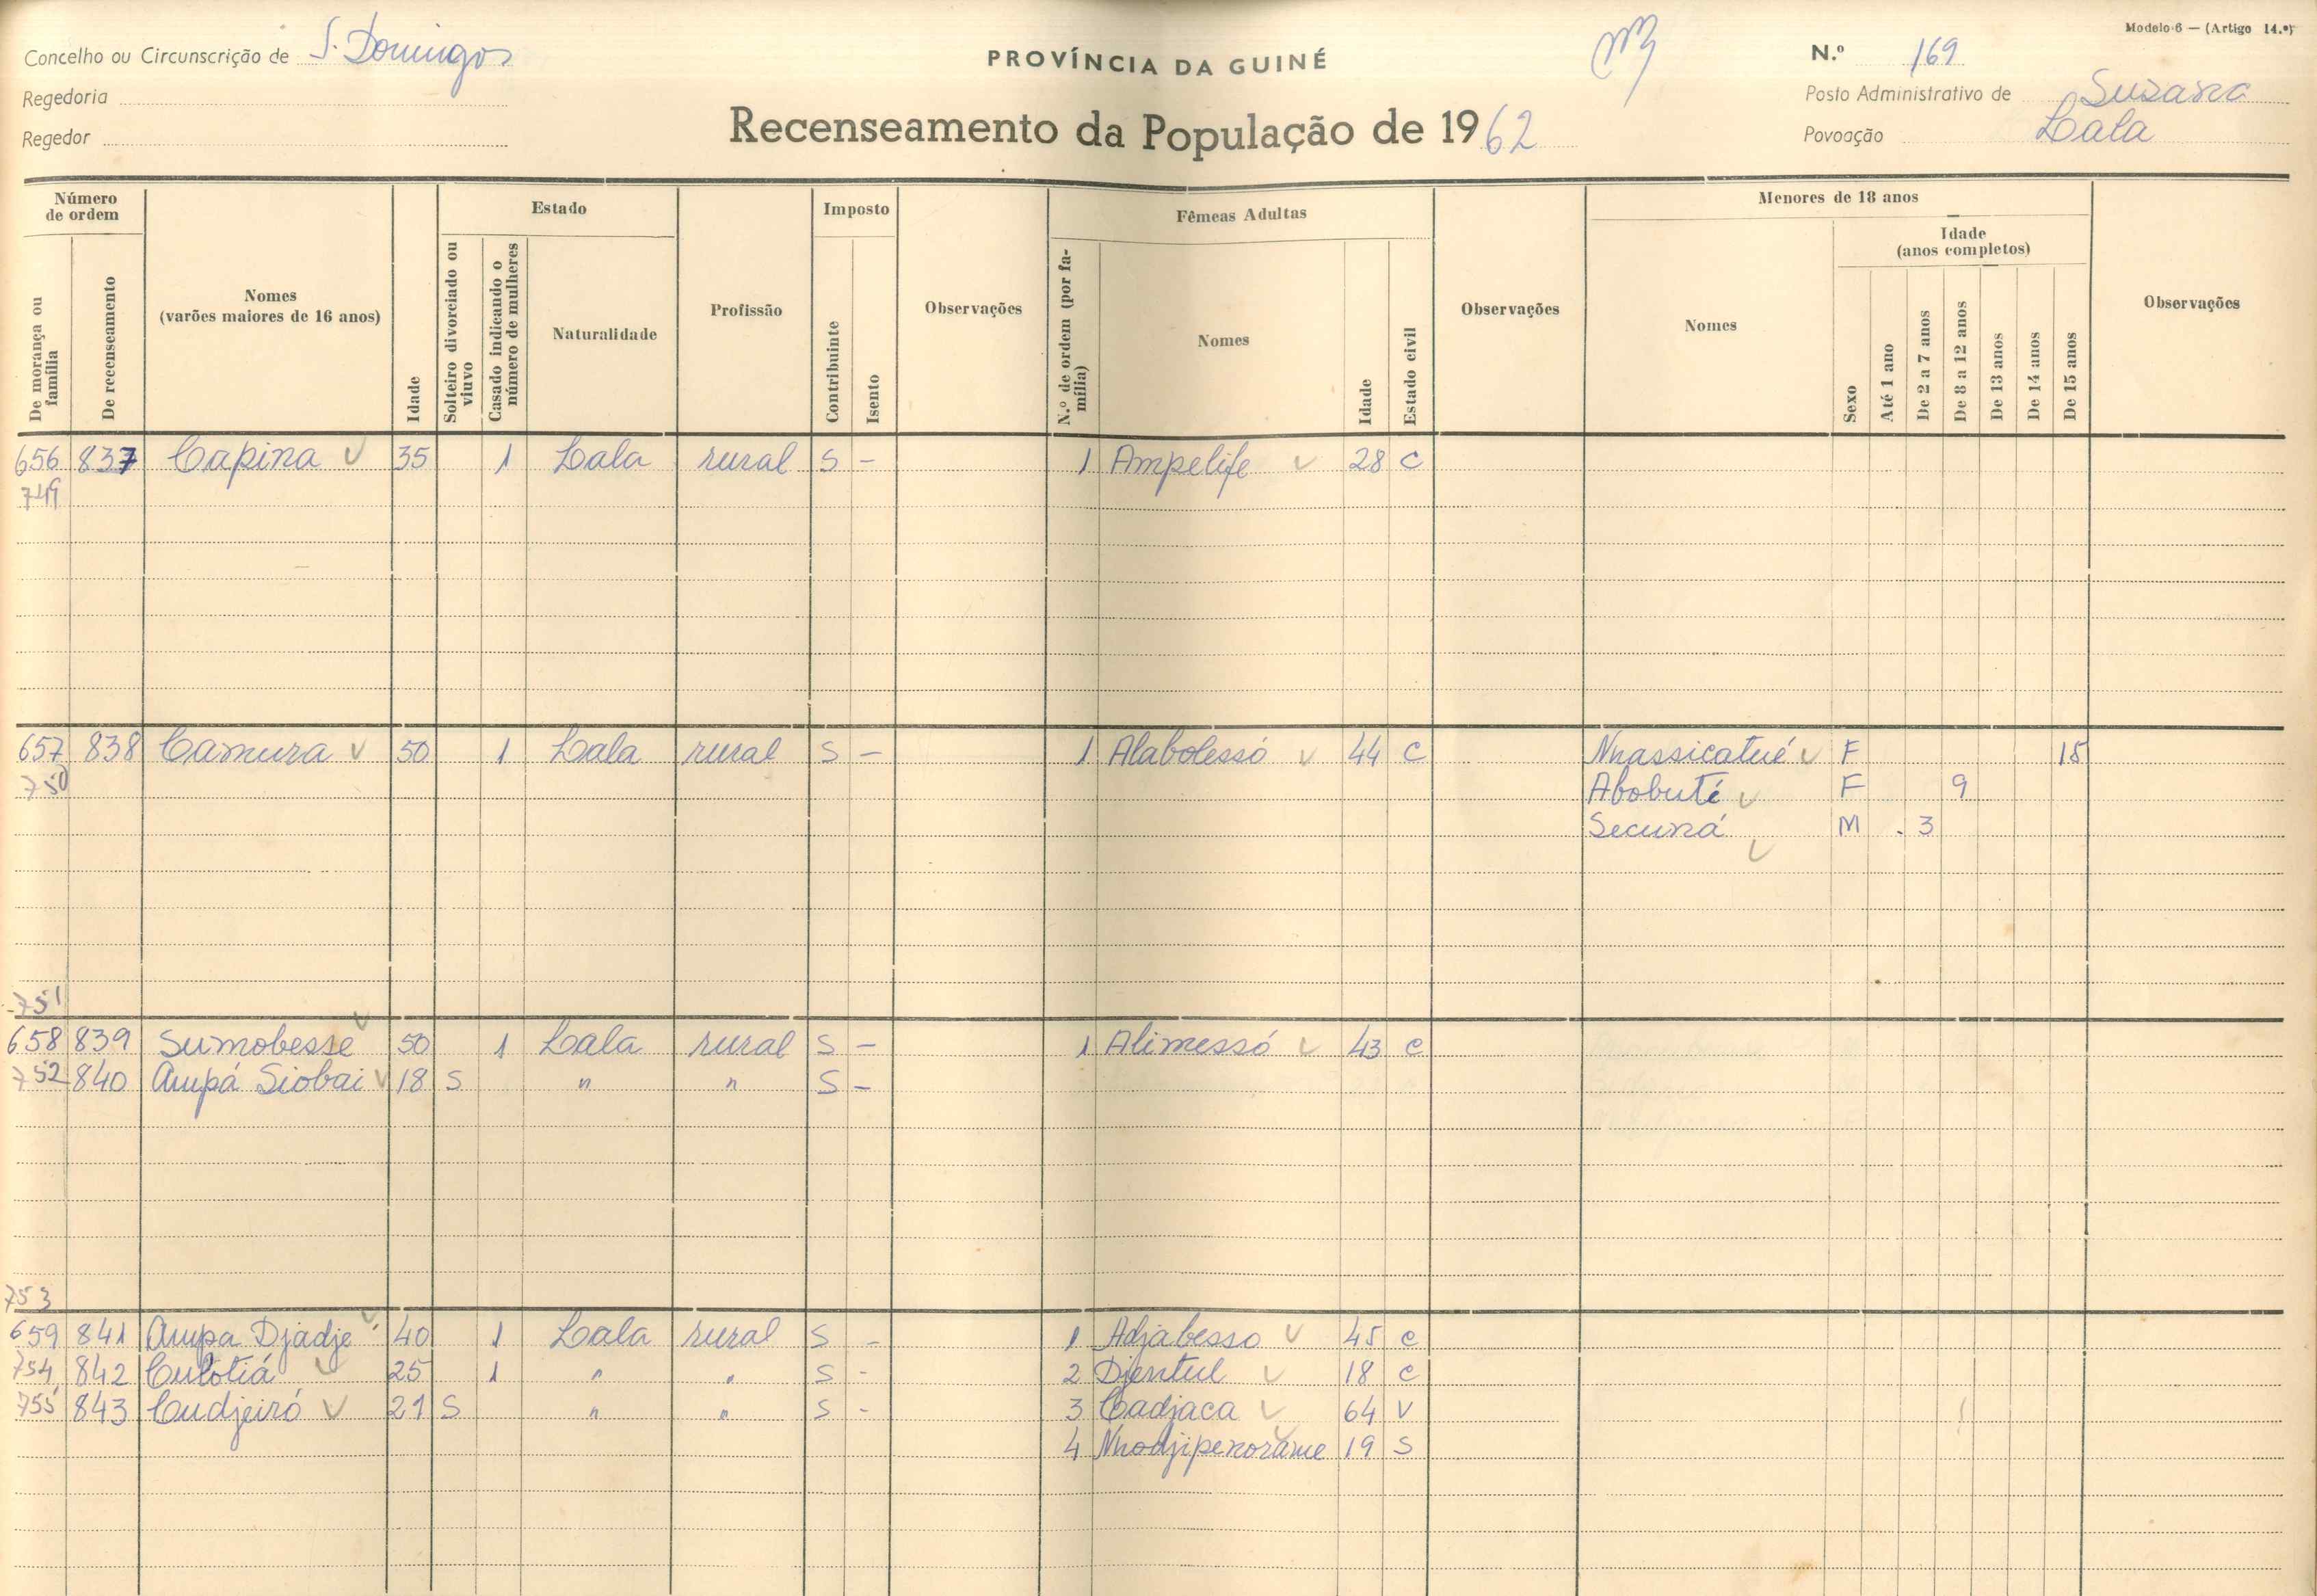 Modelo 6 — (Artigo 14.º)
Concelho ou Circunscrição de S. Domingos
PROVÍNCIA DA GUINÉ
N.º 169
Regedoria
Posto Administrativo de Suzana
Regedor
Recenseamento da População de 1962
Povoação Lala
Número de ordem
De morança ou família
De recenseamento
Nomes (varões maiores de 16 anos)
Idade
Estado
Solteiro divorciado ou viuvo
Casado indicando o número de mulheres
Naturalidade
Profissão
Imposto
Contribuinte
Isento
Observações
Fêmeas Adultas
N.º de ordem (por família)
Nomes
Idade
Estado civil
Observações
Menores de 18 anos
Nomes
Sexo
Idade (anos completos)
Até 1 ano
De 2 a 7 anos
De 8 a 12 anos
De 13 anos
De 14 anos
De 15 anos
Observações
656 837 Capina 35 1 Lala rural S - 1 Ampelife 28 C
749
657 838 Camura 50 1 Lala rural S - 1 Alabolessó 44 C Nhassicatué F 15
750 Abobuté F 9
Secuná M 3
751
658 839 Sumobesse 50 1 Lala rural S - 1 Alimessó 43 C
752 840 Ampá Siobai 18 S " " S -
753
659 841 Ampa Djadje 40 1 Lala rural S - 1 Adjabesso 45 C
754 842 Culotiá 25 1 " " S - 2 Djentul 18 C
755 843 Cudjeiró 21 S " " S - 3 Cadjaca 64 V
4 Nhodjipenorame 19 S